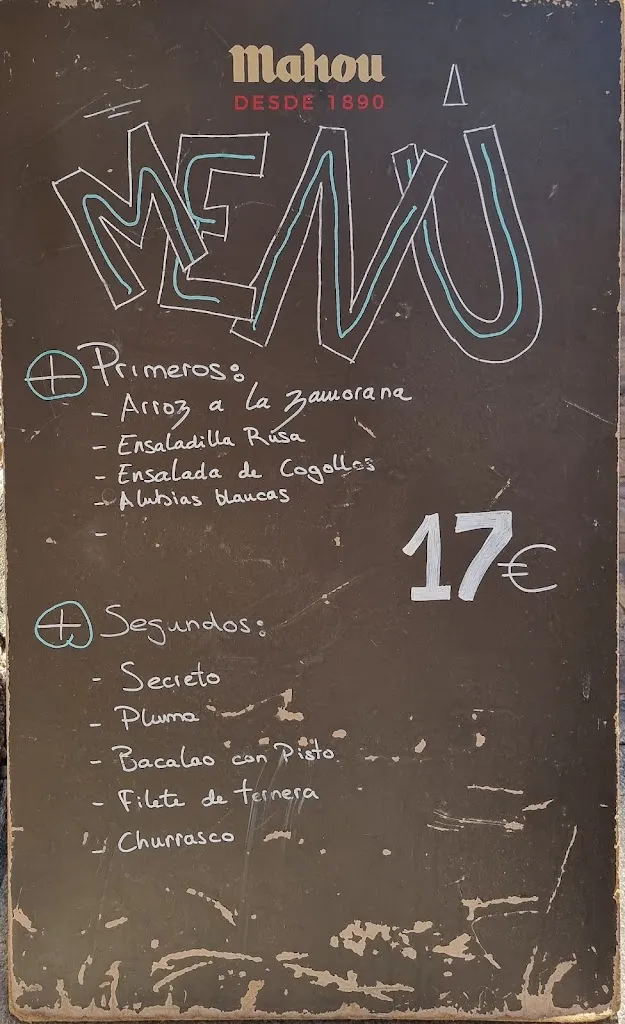 Mahou
DESDE 1890
MENÚ
Primeros:
- Arroz a la zamorana
- Ensaladilla Rusa
- Ensalada de Cogollos
- Alubias blancas
-
17€
Segundos:
- Secreto
- Pluma
- Bacalao con Pisto
- Filete de ternera
- Churrasco